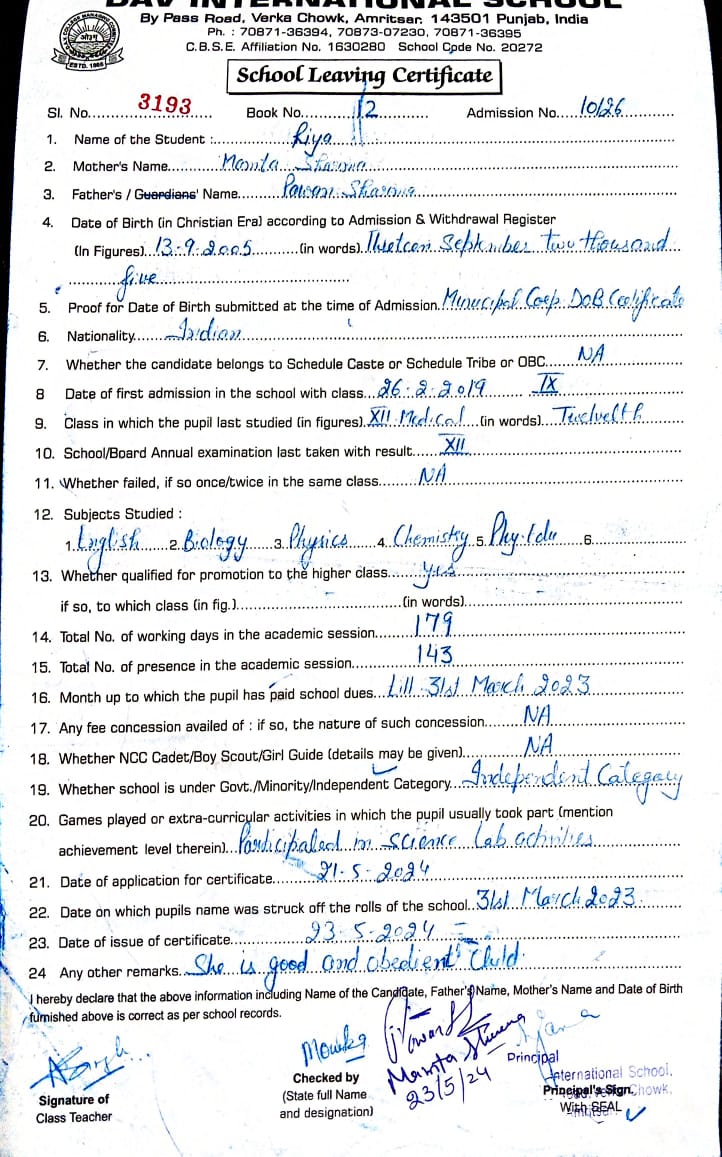 DAV INTERNATIONAL SCHOOL
By Pass Road, Verka Chowk, Amritsar, 143501 Punjab, India
Ph. : 70871-36394, 70873-07230, 70871-36395
C.B.S.E. Affiliation No. 1630280 School Code No. 20272
ESTD. 1886
School Leaving Certificate
Sl. No. 3193 Book No. 12 Admission No. 10/26
1. Name of the Student :- Riya
2. Mother's Name Mamta Sharma
3. Father's / Guardians' Name Pawan Sharma
4. Date of Birth (in Christian Era) according to Admission & Withdrawal Register
(In Figures) 13-9-2005 (in words) Thirteen September two thousand
five
5. Proof for Date of Birth submitted at the time of Admission Municipal Corp. DOB Certificate
6. Nationality Indian
7. Whether the candidate belongs to Schedule Caste or Schedule Tribe or OBC NA
8 Date of first admission in the school with class 26-2-2019 IX
9. Class in which the pupil last studied (in figures) XII Medical (in words) Twelveth
10. School/Board Annual examination last taken with result XII
11. Whether failed, if so once/twice in the same class NA
12. Subjects Studied :
1. English 2. Biology 3. Physics 4. Chemistry 5. Phy. Edu 6.
13. Whether qualified for promotion to the higher class Yes
if so, to which class (in fig.) (in words)
14. Total No. of working days in the academic session 179
15. Total No. of presence in the academic session 143
16. Month up to which the pupil has paid school dues Till 31st March 2023
17. Any fee concession availed of : if so, the nature of such concession NA
18. Whether NCC Cadet/Boy Scout/Girl Guide (details may be given) NA
19. Whether school is under Govt./Minority/Independent Category Independent Category
20. Games played or extra-curricular activities in which the pupil usually took part (mention
achievement level therein) Participated in science lab activities
21. Date of application for certificate 21-5-2024
22. Date on which pupils name was struck off the rolls of the school 31st March 2023
23. Date of issue of certificate 23-5-2024
24 Any other remarks She is good and obedient child
I hereby declare that the above information including Name of the Candidate, Father's Name, Mother's Name and Date of Birth
furnished above is correct as per school records.
Mamta Sharma
23/5/24
Principal
International School,
Chowk,
Signature of
Class Teacher
Checked by
(State full Name
and designation)
Principal's Sign.
With SEAL